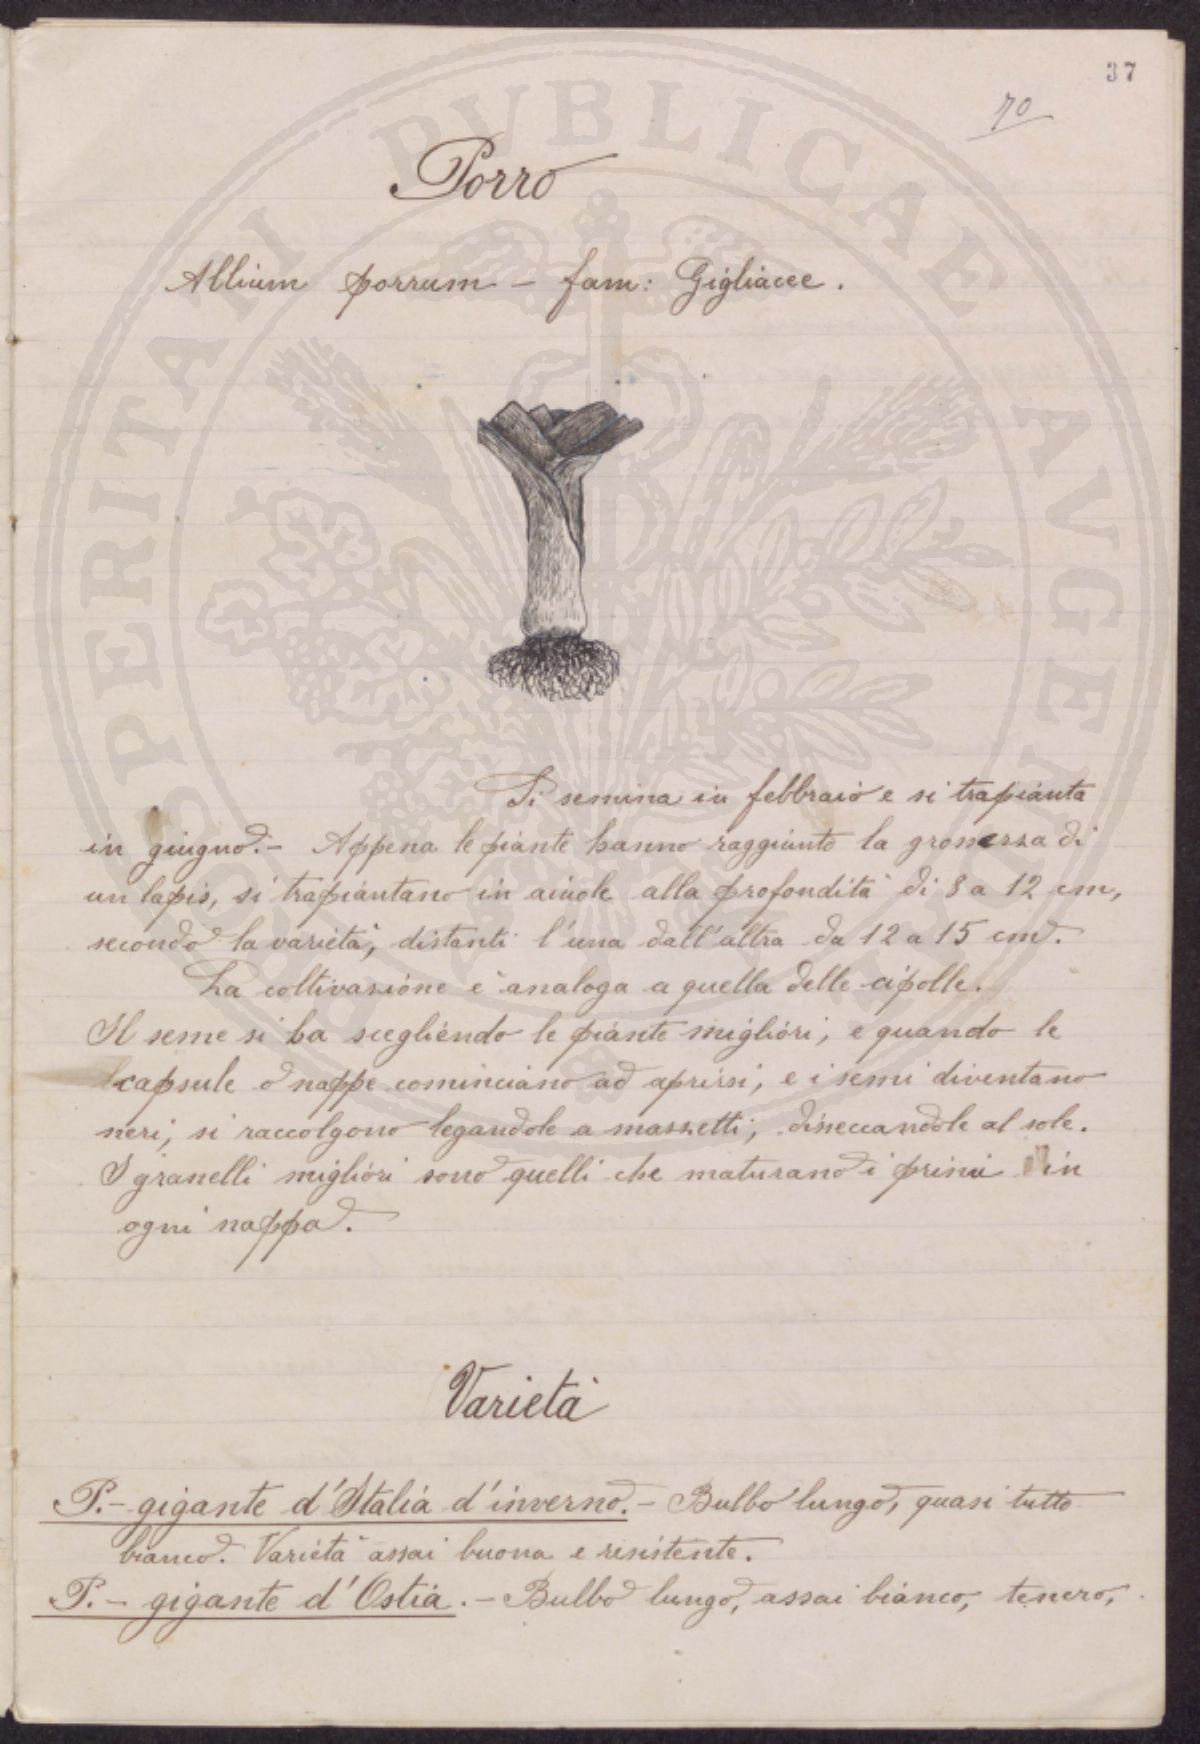 37
70
Porro
Allium porrum - fam: Gigliacee.
Si semina in febbraio e si trapianta
in giugno.- Appena le piante hanno raggiunto la grossezza di
un lapis, si trapiantano in aiuole alla profondità di 8 a 12 cm,
secondo la varietà, distanti l'una dall'altra da 12 a 15 cm.
La coltivazione è analoga a quella delle cipolle.
Il seme si ha scegliendo le piante migliori, e quando le
capsule o nappe cominciano ad aprirsi, e i semi diventano
neri, si raccolgono legandole a mazzetti, disseccandole al sole.
I granelli migliori sono quelli che maturano i primi in
ogni nappa.
Varietà
P.- gigante d'Italia d'inverno.- Bulbo lungo, quasi tutto
bianco. Varietà assai buona e resistente.
P.- gigante d'Ostia.- Bulbo lungo, assai bianco, tenero,
PUBLICAE
AVGEN
PERITATI